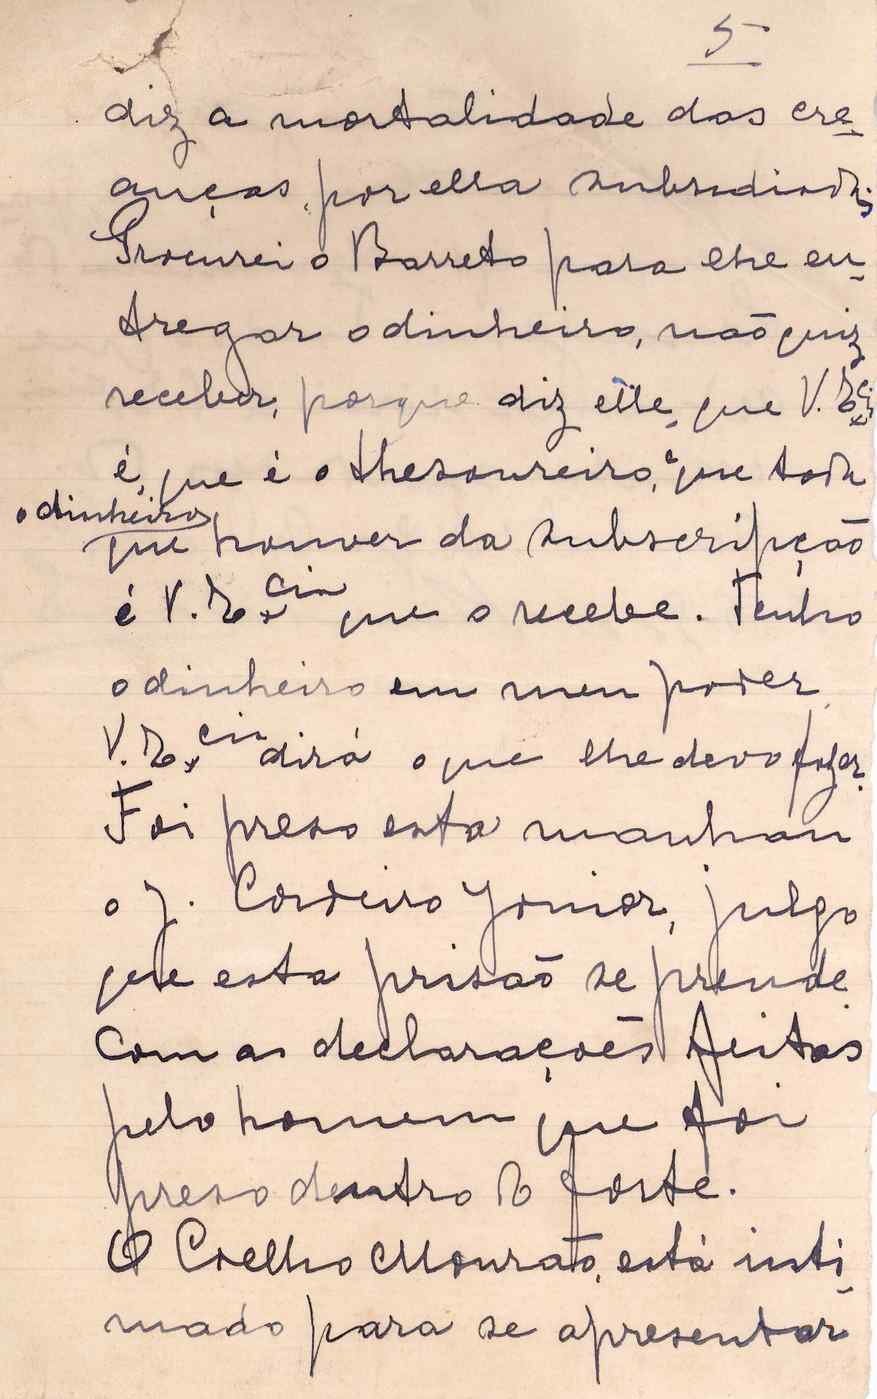 5
diz a mortalidade das cre-
anças, por ella subsidiadas
Procurei o Barreto para lhe en-
tregar o dinheiro, não quiz
receber, porque diz elle, que V. Ex.cia
é, que é o thesoureiro, e que todo
o dinheiro
que houver da subscripção
é V. Ex.cia que o recebe. Tenho
o dinheiro em meu poder,
V. Ex.cia dirá o que lhe devo fazer.
Foi preso esta manhan
o J. Cordeiro Junior, julgo
que esta prisão se prende
com as declarações feitas
pelo homem que foi
preso dentro do forte.
O Coelho Mourão, está inti-
mado para se apresentar